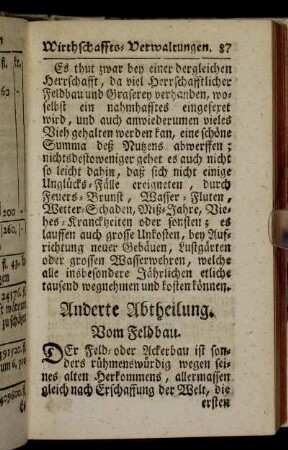 Wirthschaffts-Verwaltungen. 87
Es thut zwar bey einer dergleichen
Herrschafft, da viel Herrschafftlicher
Feldbau und Graserey verhanden, wo-
selbst ein nahmhafftes eingesext
wird, und auch anwiederumen vieles
Vieh gehalten werden kan, eine schöne
Summa deß Nutzens abwerffen;
nichtsdestoweniger gehet es auch nicht
so leicht dahin, daß sich nicht einige
Unglücks-Fälle ereigneten, durch
Feuers-Brunst, Wasser-Fluten,
Wetter-Schaden, Miß-Jahre, Vie-
hes-Kranckheiten oder sonsten; es
lauffen auch grosse Unkosten, bey Auf-
richtung neuer Gebäuen, Lustgärten
oder grossen Wasserwehren, welche
alle insbesondere Jährlichen etliche
tausend wegnehmen und kosten können.
Anderte Abtheilung.
Vom Feldbau.
DEr Feld- oder Ackerbau ist son-
ders rühmenswürdig wegen sei-
nes alten Herkommens, allermassen
gleich nach Erschaffung der Welt, die
ersten